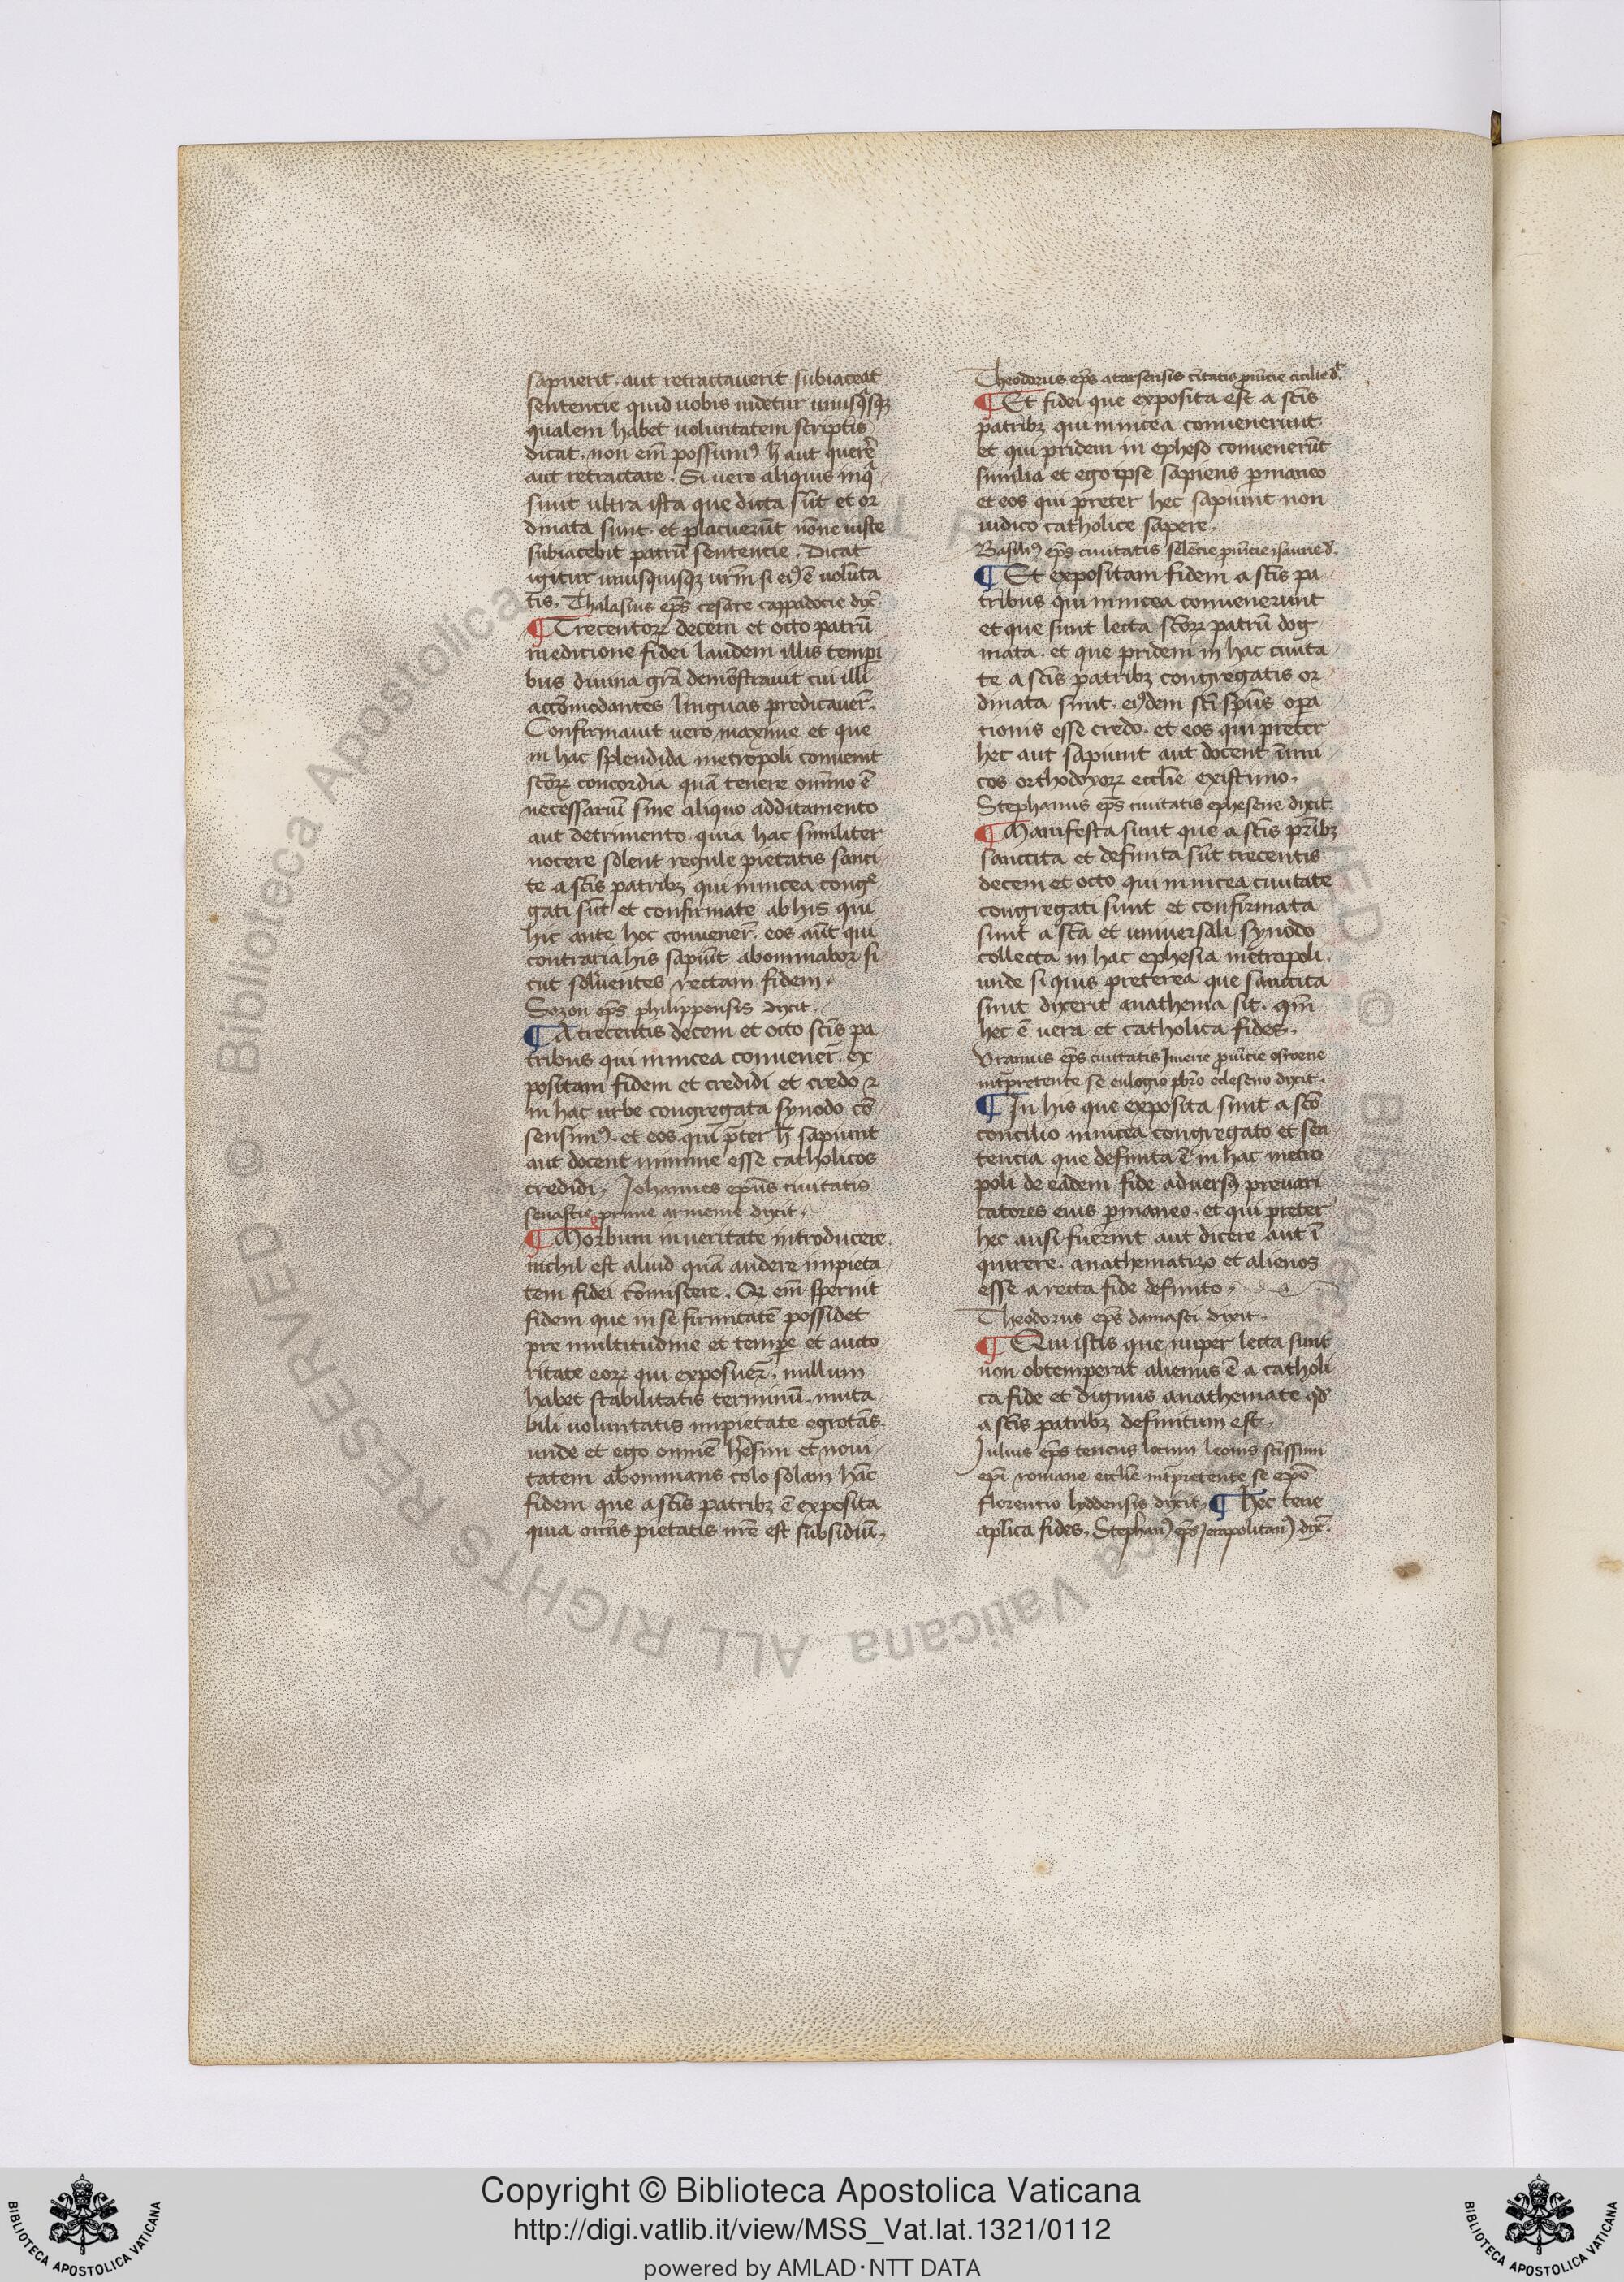 sapuerit. aut retractauerit subiaceat
sentencie quid uobis uidetur unusqsqꝫ
qualem habet uoluntatem scriptis
dicat. non em̄ possumꝰ h̄ aut querē
aut retractare. Si uero aliquis inq̄
sunt ultra ista que dicta sūt et or
dinata sunt. et placuerūt nōne iuste
subiacebit patrū sentencie. Dicat
igitur unusquisqꝫ ur̄m si eiꝰ ē uolūta
tis. Thalasius ep̄s cesare cappadocie dix̄.
¶ Trecentoꝝ decem et octo patrū
in edicione fidei laudem illis temꝑi
bus diuina gr̄a demōstrauit cui illi
accōmodantes linguas predicauer̄.
Confirmauit uero maxime et que
in hac splendida metropoli conuenit
sc̄oꝝ concordia quā tenere omīno ē
necessariū sine aliquo additamento
aut detrimento. quia hac similiter
nocere solent regule pietatis sanci
te a sc̄is patribꝫ qui in nicea congͤ
gati sūt et confirmate ab his qui
hic ante hoc conuener̄. eos aūt qui
contraria his sapiūt abominabor si
cut soluentes rectam fidem.
Sozon ep̄s philippensis dixit.
¶ A trecentis decem et octo sc̄is pa
tribus qui in nicea conuener̄. ex
positam fidem et credidi et credo ⁊
in hac urbe congregata synodo cō
sensimꝰ. et eos qui p̄ter h̄ sapiunt
aut docent minime esse catholicos
credidi. Johannes ep̄us ciuitatis
seuastie prime armenie dixit.
¶ Morbum in ueritate introducere.
nichil est aliud quā audere impieta
tem fidei cōmiscere. Q em̄ spernit
fidem que in se firmitatē possidet
pre multitudine et tempe et aucto
ritate eoꝝ qui exposuer̄. nullum
habet stabilitatis terminū. muta
bili uoluntatis impietate egrotās.
unde et ego omnē h̄esim et noui
tatem abominans colo solam hāc
fidem que a sc̄is patribꝫ ē exposita
quia om̄s pietatis nr̄e est subsidiū.
Theodorus ep̄s atarsensis ciitatis ꝓuīcie cicilie d̄.
¶ Et fidei que exposita est a sc̄is
patribꝫ qui in nicea conuenerunt.
et qui pridem in epheso conuenerūt
similia et ego ipse sapiens ꝑmaneo
et eos qui preter hec sapiunt non
iudico catholice sapere.
Basiliꝰ ep̄s ciuitatis selēcie ꝓuīcie isaurie d̄.
¶ Et expositam fidem a sc̄is pa
tribus qui in nicea conuenerunt
et que sunt lecta sc̄oꝝ patrū dog
mata. et que pridem in hac ciuita
te a sc̄is patribꝫ congregatis or
dinata sunt. eiꝰdem sc̄i sp̄us oꝑa
tionis esse credo. et eos qui preter
hec aut sapiunt aut docent inimi
cos orthodoxoꝝ eccl̄ie existimo.
Stephanus ep̄s ciuitatis ephesene dixit.
¶ Manifesta sunt que a sc̄is pr̄ibꝫ
sanctita et definita sūt trecentis
decem et octo qui in nicea ciuitate
congregati sunt et confirmata
sunt a sc̄a et uniuersali synodo
collecta in hac ephesia metropoli.
unde si quis preterea que sanctita
sunt dixerit anathema sit. qm̄
hec ē uera et catholica fides.
Vranius ep̄s ciuitatis Jmerie ꝓuīcie osroene
int̄pretente se eulogio pb̄ro edeseno dixit.
¶ In his que exposita sunt a sc̄o
concilio in nicea congregato et sen
tencia que definita ē in hac metro
poli de eadem fide aduersꝰ preuari
catores eius ꝑmaneo. et qui preter
hec ausi fuerint aut dicere aut ī
quirere. anathematizo et alienos
esse a recta fide definito.
Theodorus ep̄s damasci dixit.
¶ Qui istis que nuper lecta sunt
non obtemperat alienus ē a catholi
ca fide et dignus anathemate qd̄
a sc̄is patribꝫ definitum est.
Julius ep̄s tenens locum leonis sc̄issimi
ep̄i romane eccl̄ie int̄pretente se ep̄o
florentio lyddensis dixit. ¶ Hec tene
apl̄ica fides. Stephanꝰ ep̄s Jerapolitanꝰ dix̄.
Copyright © Biblioteca Apostolica Vaticana
http://digi.vatlib.it/view/MSS_Vat.lat.1321/0112
powered by AMLAD·NTT DATA
BIBLIOTECA APOSTOLICA VATICANA
BIBLIOTECA APOSTOLICA VATICANA